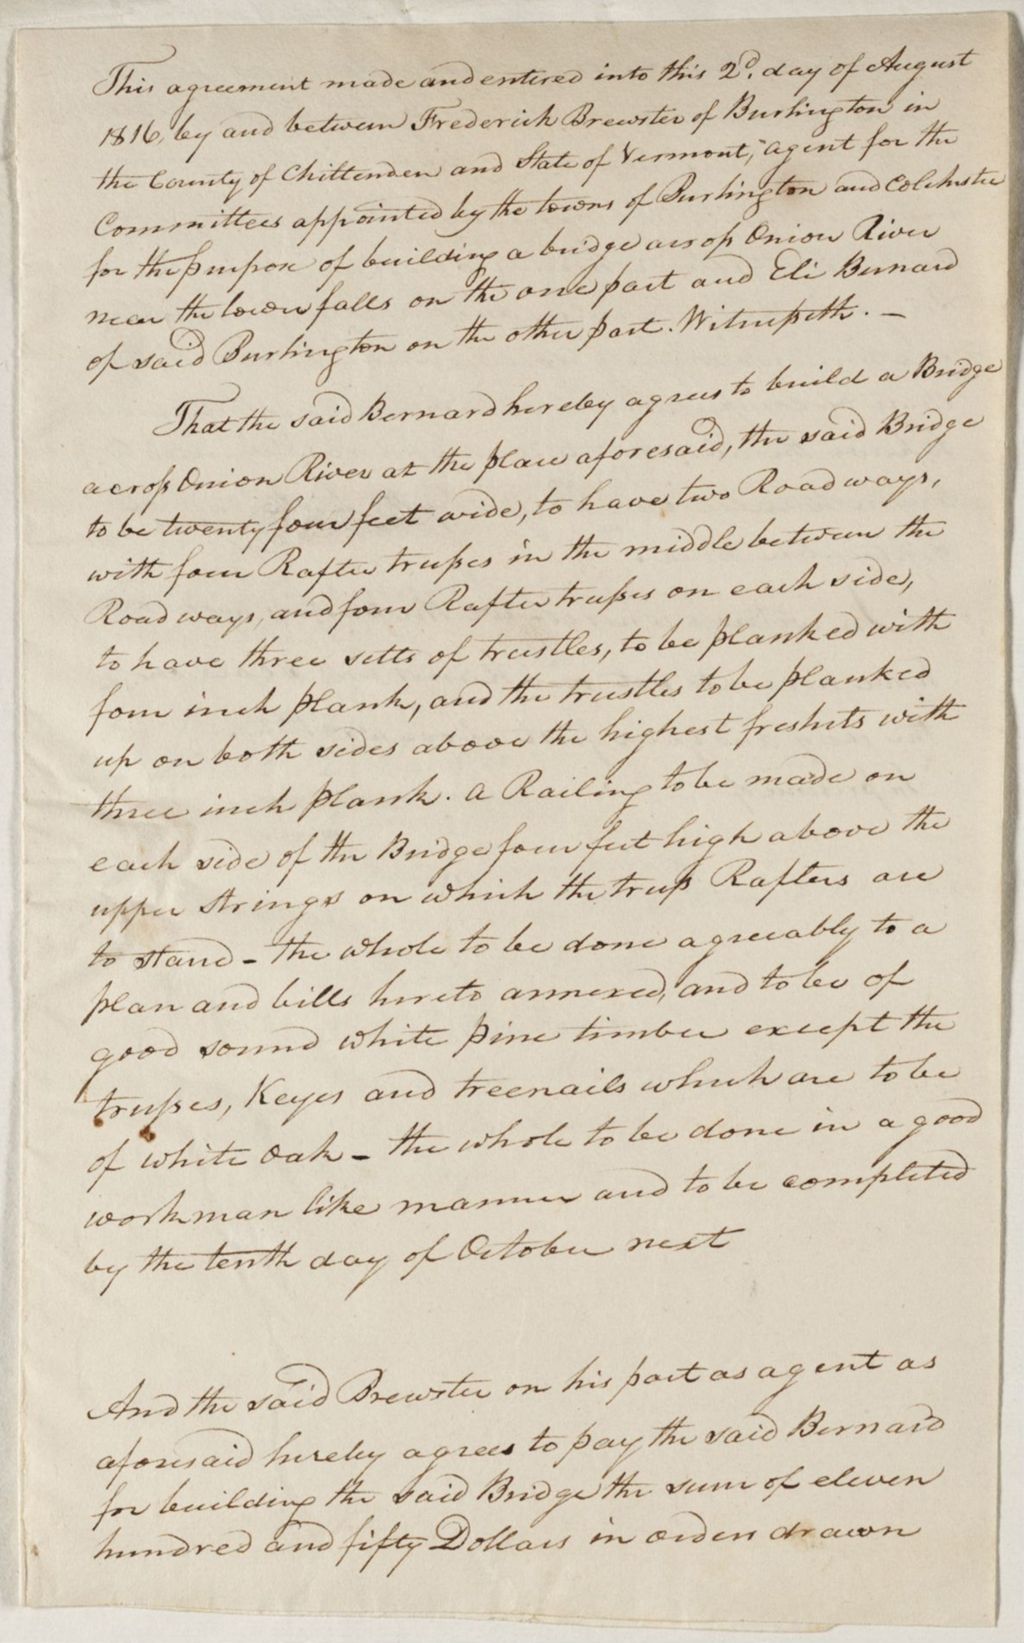 This agreement made and entered into this 2d. day of August
1816, by and between Frederick Brewster of Burlington in
the County of Chittenden and State of Vermont, agent for the
Committees appointed by the towns of Burlington and Colchester
for the purpose of building a bridge across Onion River
near the lower falls on the one part and Eli Bernard
of said Burlington on the other part. Witnesseth. —
That the said Bernard hereby agrees to build a Bridge
across Onion River at the place aforesaid, the said Bridge
to be twenty four feet wide, to have two Road ways,
with four Rafter trusses in the middle between the
Road ways, and four Rafter trusses on each side,
to have three setts of trustles, to be planked with
four inch plank, and the trustles to be planked
up on both sides above the highest freshets with
three inch plank. a Railing to be made on
each side of the Bridge four feet high above the
upper strings on which the truss Rafters are
to stand - the whole to be done agreeably to a
plan and bills hereto annexed, and to be of
good sound white pine timber except the
trusses, Keyes and treenails which are to be
of white oak - the whole to be done in a good
workman like manner and to be completed
by the tenth day of October next
And the said Brewster on his part as agent as
aforesaid hereby agrees to pay the said Bernard
for building the said Bridge the sum of eleven
hundred and fifty Dollars in orders drawn